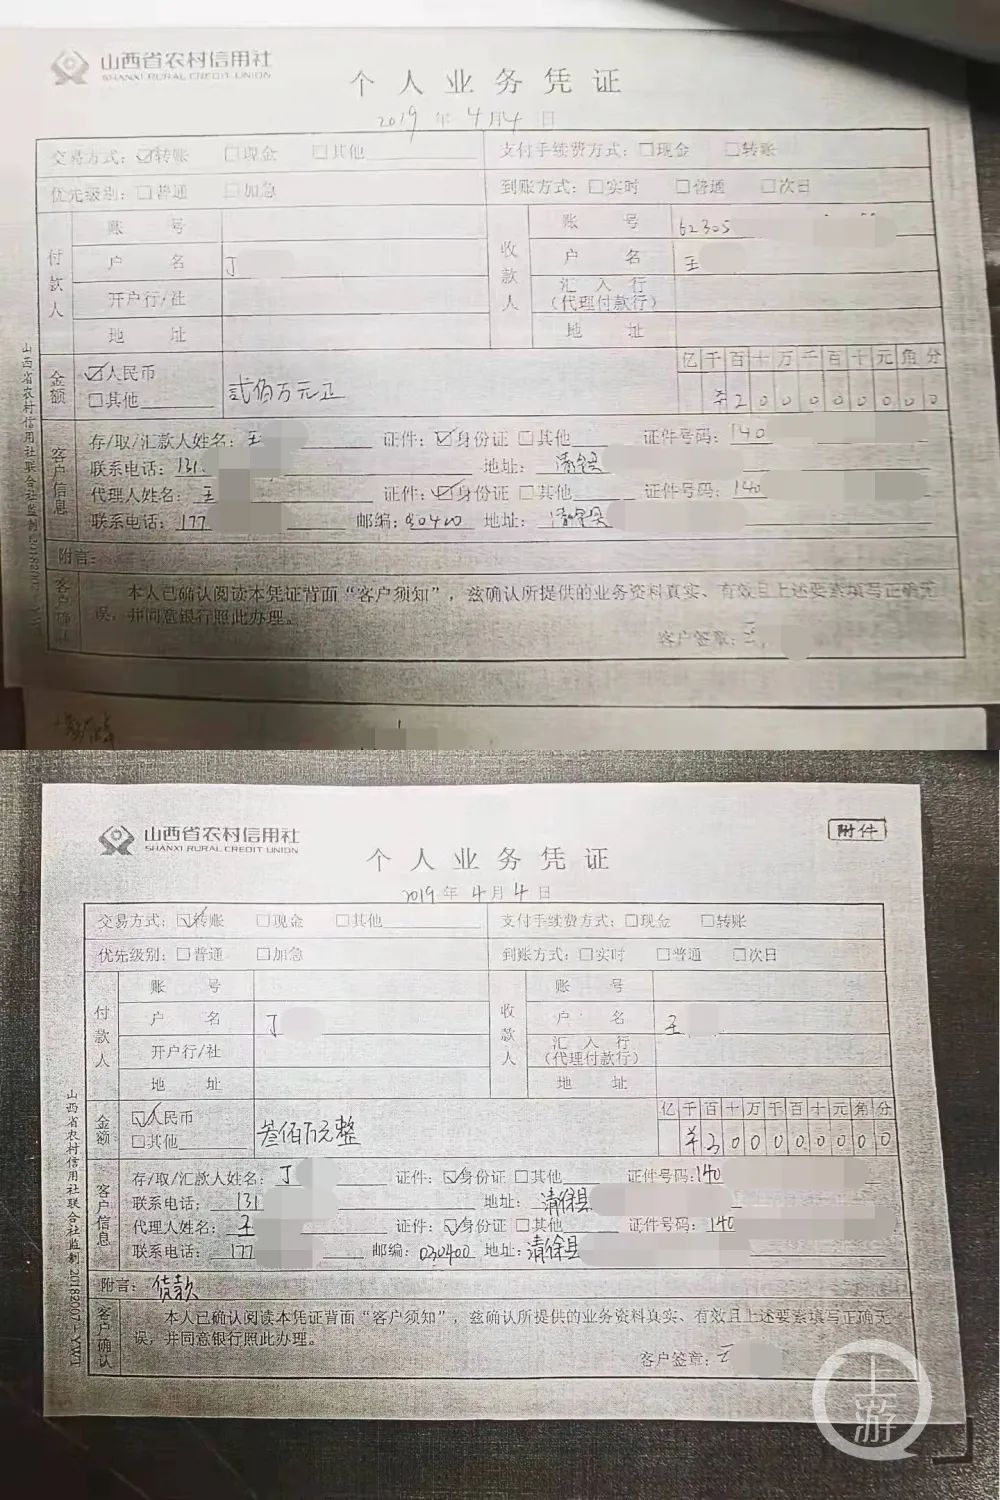 山西省农村信用社
SHANXI RURAL CREDIT UNION
个人业务凭证
2019年4月4日
交易方式：☑转账 □现金 □其他 支付手续费方式：□现金 □转账
优先级别：□普通 □加急 到账方式：□实时 □普通 □次日
付款人 收款人
账号 账号 62305
户名 丁 户名 王
开户行/社 汇入行
（代理付款行）
地址 地址
亿千百十万千百十元角分
金额 ☑人民币 贰佰万元正 ¥200000000
□其他
客户信息
存/取/汇款人姓名：王 证件：☑身份证 □其他 证件号码：140
联系电话：131 地址：清徐县
代理人姓名：王 证件：☑身份证 □其他 证件号码：140
联系电话：177 邮编：030400 地址：清徐县
附言：
客户确认
本人已确认阅读本凭证背面“客户须知”，兹确认所提供的业务资料真实、有效且上述要素填写正确无
误，并同意银行照此办理。
客户签章：王
山西省农村信用社联合社监制
山西省农村信用社
SHANXI RURAL CREDIT UNION
附件
个人业务凭证
2019年4月4日
交易方式：☑转账 □现金 □其他 支付手续费方式：□现金 □转账
优先级别：□普通 □加急 到账方式：□实时 □普通 □次日
付款人 收款人
账号 账号
户名 丁 户名 王
开户行/社 汇入行
（代理付款行）
地址 地址
亿千百十万千百十元角分
金额 ☑人民币 叁佰万元整 ¥300000000
□其他
客户信息
存/取/汇款人姓名：丁 证件：☑身份证 □其他 证件号码：140
联系电话：131 地址：清徐县
代理人姓名：王 证件：☑身份证 □其他 证件号码：140
联系电话：177 邮编：030400 地址：清徐县
附言：货款
客户确认
本人已确认阅读本凭证背面“客户须知”，兹确认所提供的业务资料真实、有效且上述要素填写正确无
误，并同意银行照此办理。
客户签章：王
山西省农村信用社联合社监制
上游